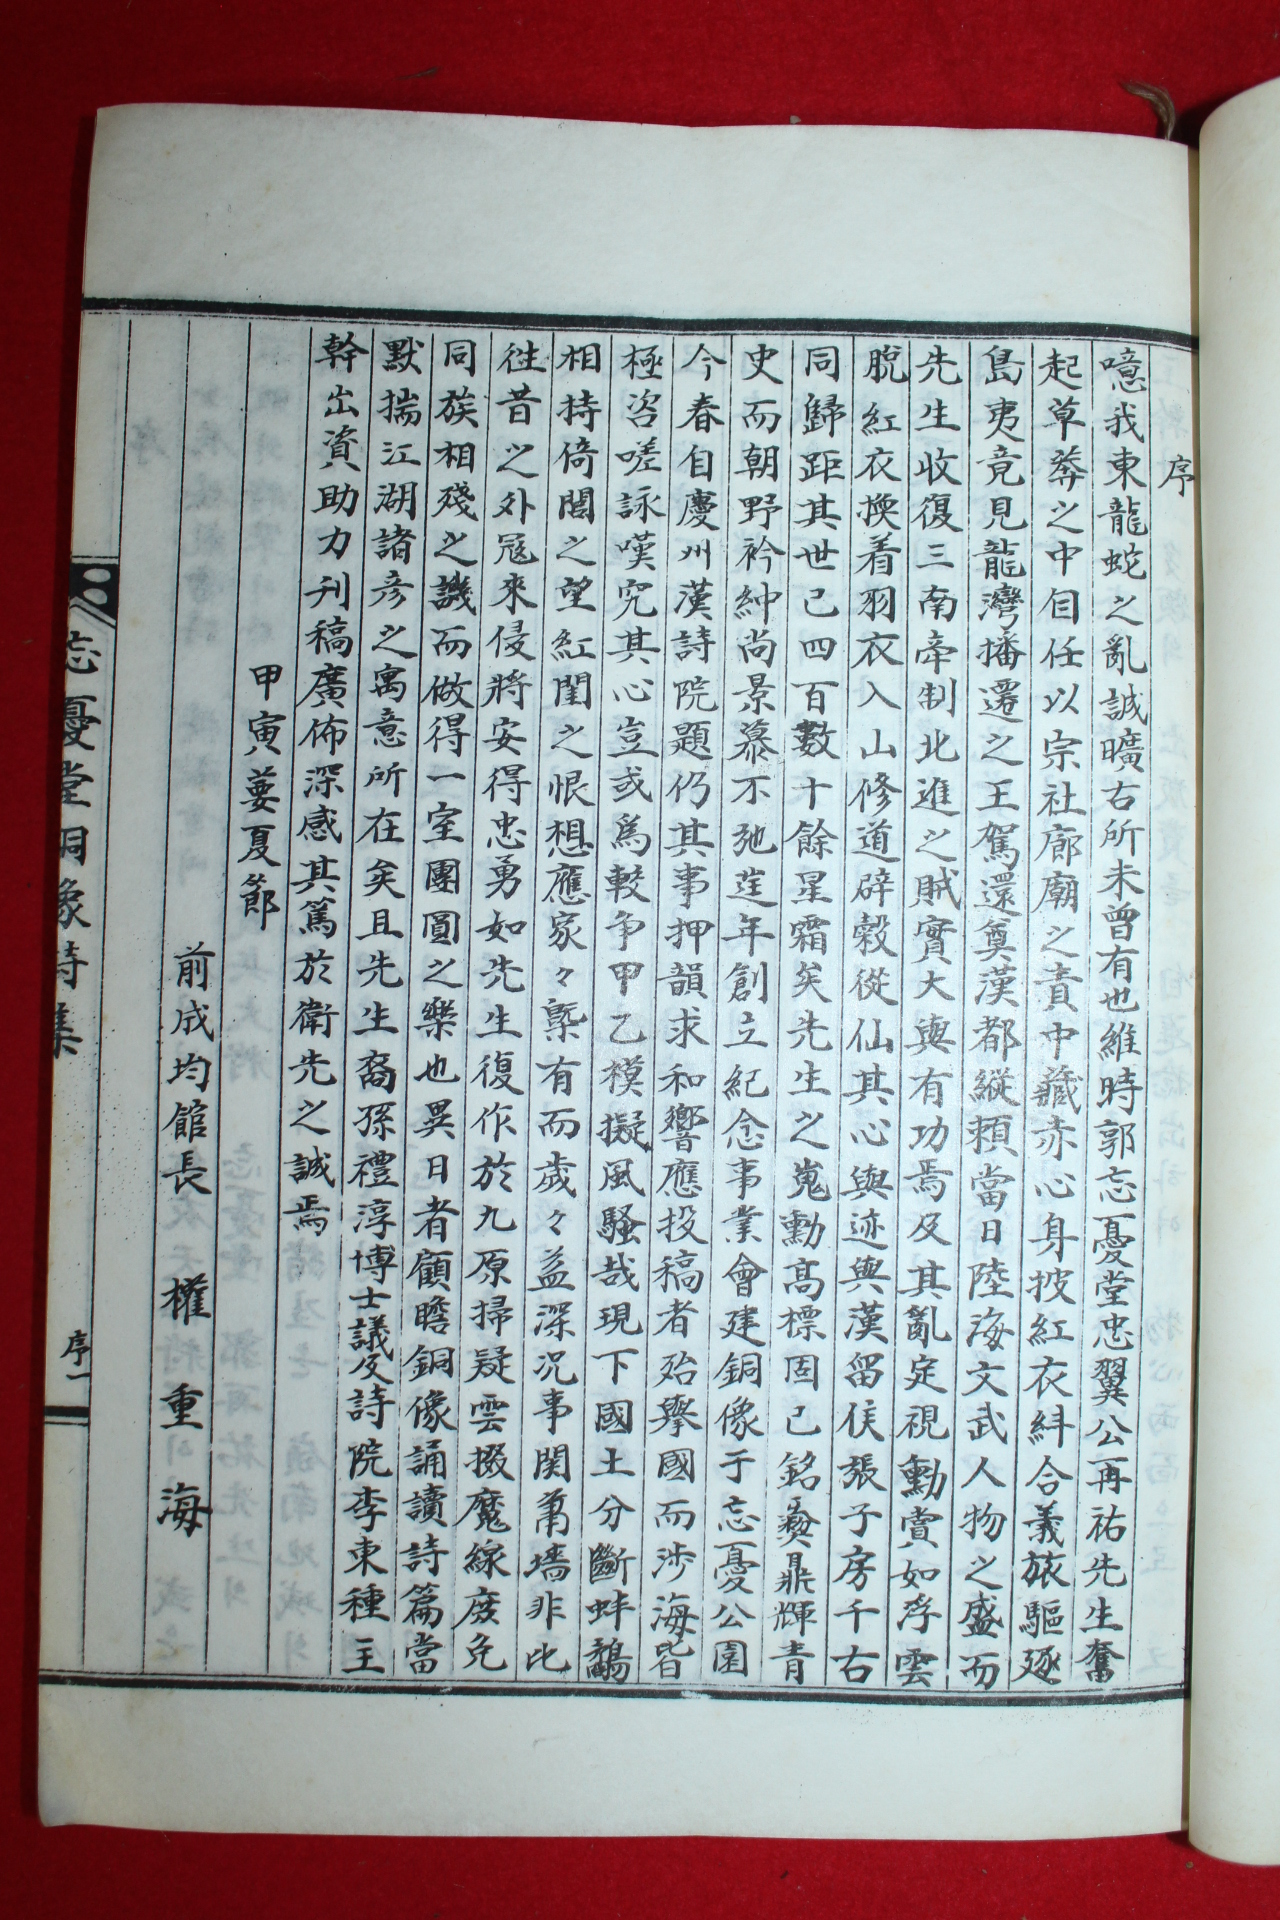 序
噫我東龍蛇之亂誠曠古所未曾有也維時郭忘憂堂忠翼公再祐先生奮
起草莽之中自任以宗社廊廟之責中藏赤心身披紅衣糾合義旅驅逐
島夷竟見龍灣播遷之王駕還奠漢都縱賴當日陸海文武人物之盛而
先生收復三南牽制北進之賊實大與有功焉及其亂定視勳賞如浮雲
脫紅衣換着羽衣入山修道辟穀從仙其心與迹與漢留侯張子房千古
同歸距其世已四百數十餘星霜矣先生之嵬勳高標固已銘彝鼎輝青
史而朝野衿紳尚景慕不弛莛年創立紀念事業會建銅像于忘憂公園
今春自慶州漢詩院題仍其事押韻求和響應投稿者殆擧國而涉海皆
極咨嗟詠嘆究其心豈或爲較争甲乙模擬風騷哉現下國土分斷蚌鷸
相持倚閭之望紅閨之恨想應家々槩有而歲々益深况事関蕭墻非比
徃昔之外冦來侵將安得忠勇如先生復作於九原掃疑雲掇魔線庻免
同族相殘之譏而做得一室團圓之樂也異日者顧瞻銅像誦讀詩篇當
默揣江湖諸彦之寓意所在矣且先生裔孫禮淳博士議及詩院李東種主
幹出資助力刊稿廣佈深感其篤於衛先之誠焉
甲寅蔞夏節
前成均館長 權重海
忘憂堂銅像詩集
序一